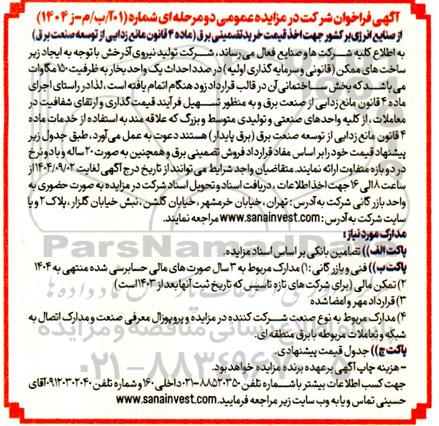 آگهی فراخوان شرکت در مزایده عمومی دو مرحله ای شماره (۰۱-آ/ب/م-ز ۱۴۰۴)
از صنایع انرژی بر کشور جهت اخذ قیمت خرید تضمینی برق (ماده ۴ قانون مانع زدایی از توسعه صنعت برق)
به اطلاع کلیه شرکت ها و صنایع فعال می رساند، شرکت تولید نیروی آذرخش با توجه به ایجاد زیر
ساخت های ممکن (قانونی و سرمایه گذاری اولیه) در صدد احداث یک واحد بخار به ظرفیت ۱۵۰ مگاوات
می باشد که بخش ساختمانی آن در قالب قرارداد زودهنگام اتمام یافته است، لذا در راستای اجرای
ماده ۴ قانون مانع زدایی از صنعت برق و به منظور تسهیل فرآیند قیمت گذاری و ارتقای شفافیت در
معاملات، از کلیه واحدهای صنعتی و تولیدی متوسط و بزرگ که علاقه مند به استفاده از خدمات ماده
۴ قانون مانع زدایی از توسعه صنعت برق (برق پایدار) هستند دعوت به عمل می آورد، طبق جدول زیر
پیشنهاد قیمت خود را بر اساس مفاد قرارداد فروش تضمینی برق و همچنین به صورت ۲۰ ساله و با دو نرخ
در دو بازه متفاوت ارائه نمایند. متقاضیان واجد شرایط می توانند از تاریخ درج آگهی لغایت ۱۴۰۴/۰۹/۰۲ از
ساعت ۸ الی ۱۶ جهت اخذ اطلاعات، دریافت اسناد و تحویل اسناد شرکت در مزایده به صورت حضوری به
واحد بازرگانی شرکت به آدرس: تهران، خیابان خرمشهر، خیابان گلشن، نبش خیابان گلزار، پلاک ۲ و یا
سایت شرکت به آدرس: www.sanainvest.com مراجعه نمایند.
مدارک مورد نیاز:
پاکت الف)) تضامین بانکی بر اساس اسناد مزایده.
پاکت ب)) فنی و بازرگانی: ۱) مدارک مربوط به ۳ سال صورت های مالی حسابرسی شده منتهی به ۱۴۰۴
۲) تمکن مالی (برای شرکت های تازه تاسیس که تاریخ ثبت آنها بعد از ۱۴۰۳ است)
۳) قرارداد مهر و امضا شده
۴) مدارک مربوط به نوع صنعت شرکت کننده در مزایده و پروپوزال معرفی صنعت و مدارک اتصال به
شبکه و تعاملات مربوطه با برق منطقه ای.
پاکت ج)) جدول قیمت پیشنهادی.
- هزینه چاپ آگهی بر عهده برنده مزایده خواهد بود.
جهت کسب اطلاعات بیشتر با شماره تلفن ۸۸۵۲۰۳۵۰-۰۲۱ داخلی ۱۶۰ و شماره تلفن ۰۹۱۲۰۳۰۲۰۴۰ آقای
حسینی تماس و یا به وب سایت زیر مراجعه فرمایید. www.sanainvest.com